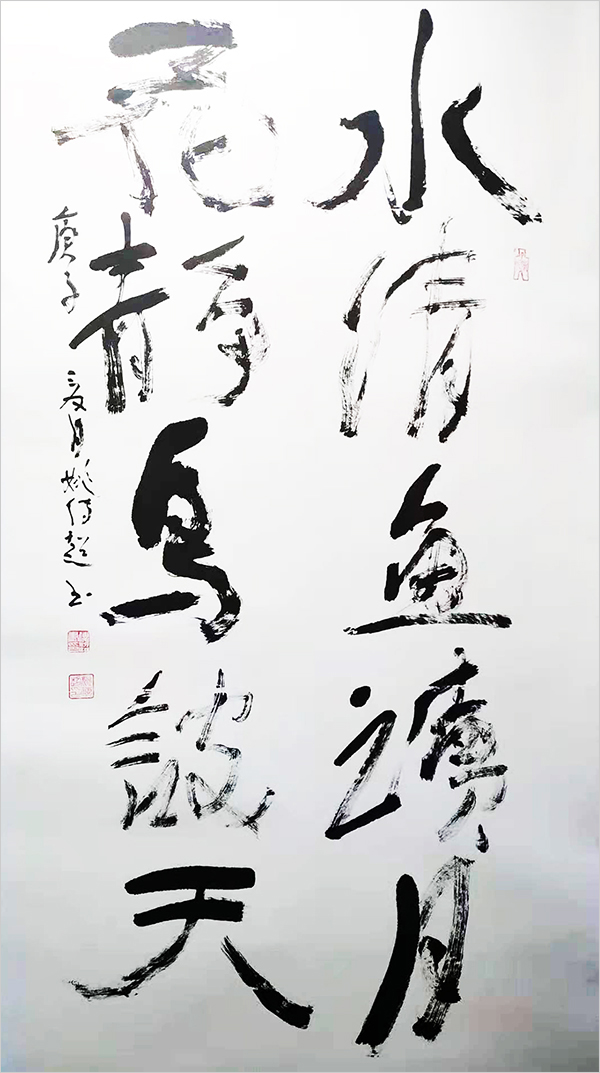 水清鱼讀月
花静鸟談天
庚子夏月姚超书